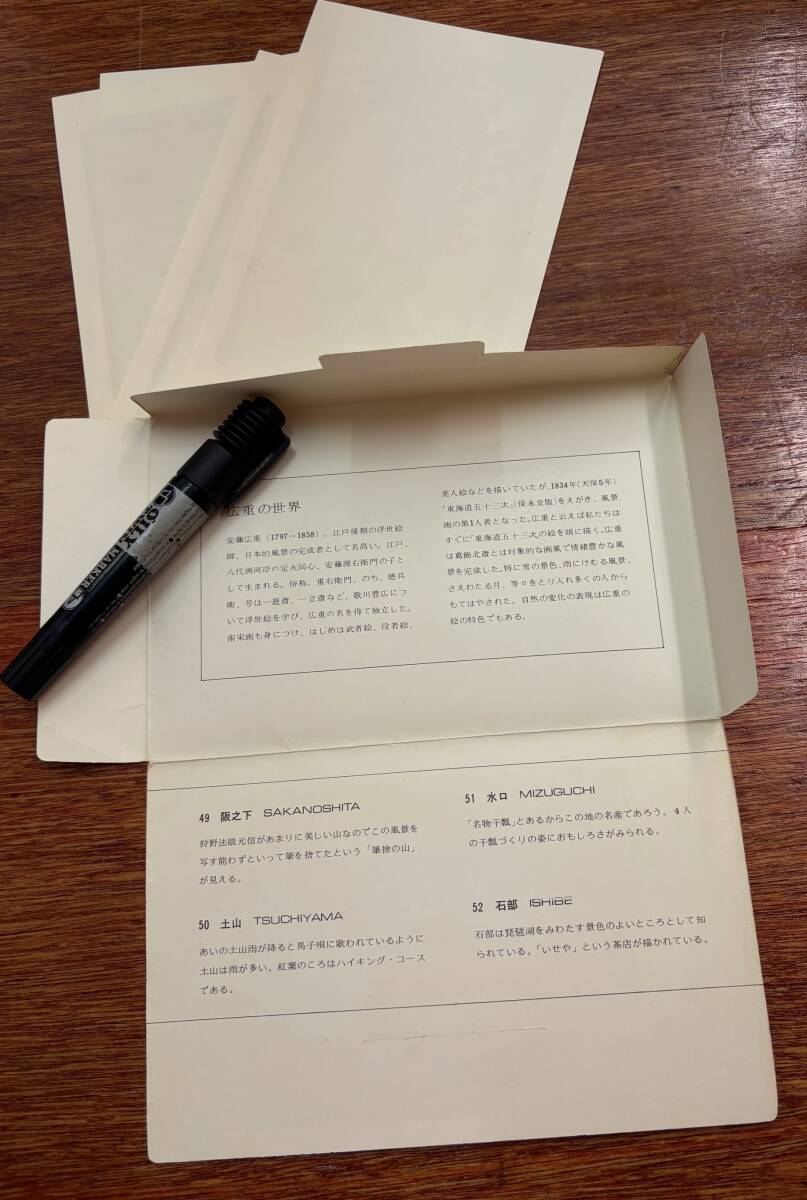 広重の世界
安藤広重（1797〜1858）。江戸後期の浮世絵
師、日本的風景の完成者として名高い。江戸、
八代洲河岸の定火同心、安藤源右衛門の子と
して生まれる。俗称、重右衛門、のち、徳兵
衛、号は一遊斎、一立斎など、歌川豊広につ
いて浮世絵を学び、広重の名を得て独立した。
南宋画も身につけ、はじめは武者絵、役者絵、
美人絵などを描いていたが、1834年(天保5年)
「東海道五十三次」(保永堂版)をえがき、風景
画の第1人者となった。広重と云えば私たちは
すぐに「東海道五十三次の絵を頭に描く。広重
は葛飾北斎とは対象的な画風で情緒豊かな風
景を完成した。特に雪の景色、雨にけむる風景、
さえわたる月、等々をとり入れ多くの人から
もてはやされた。自然の変化の表現は広重の
絵の特色でもある。
OIL MARKER
49 阪之下 SAKANOSHITA
狩野法眼元信があまりに美しい山なのでこの風景を
写す能わずといって筆を捨てたという「筆捨の山」
が見える。
50 土山 TSUCHIYAMA
あいの土山雨が降ると馬子唄に歌われているように
土山は雨が多い。紅葉のころはハイキング・コース
である。
51 水口 MIZUGUCHI
「名物干瓢」とあるからこの地の名産であろう。4人
の干瓢づくりの姿におもしろさがみられる。
52 石部 ISHIBE
石部は琵琶湖をみわたす景色のよいところとして知
られている。「いせや」という茶店が描かれている。